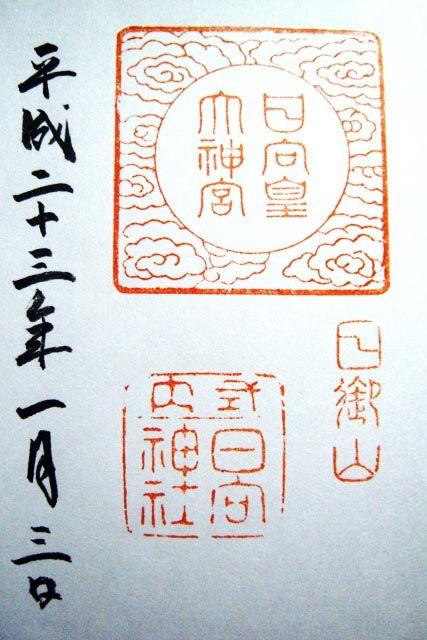 日御山
日向皇
大神宮
式内
日向
神社
平成二十三年一月三日